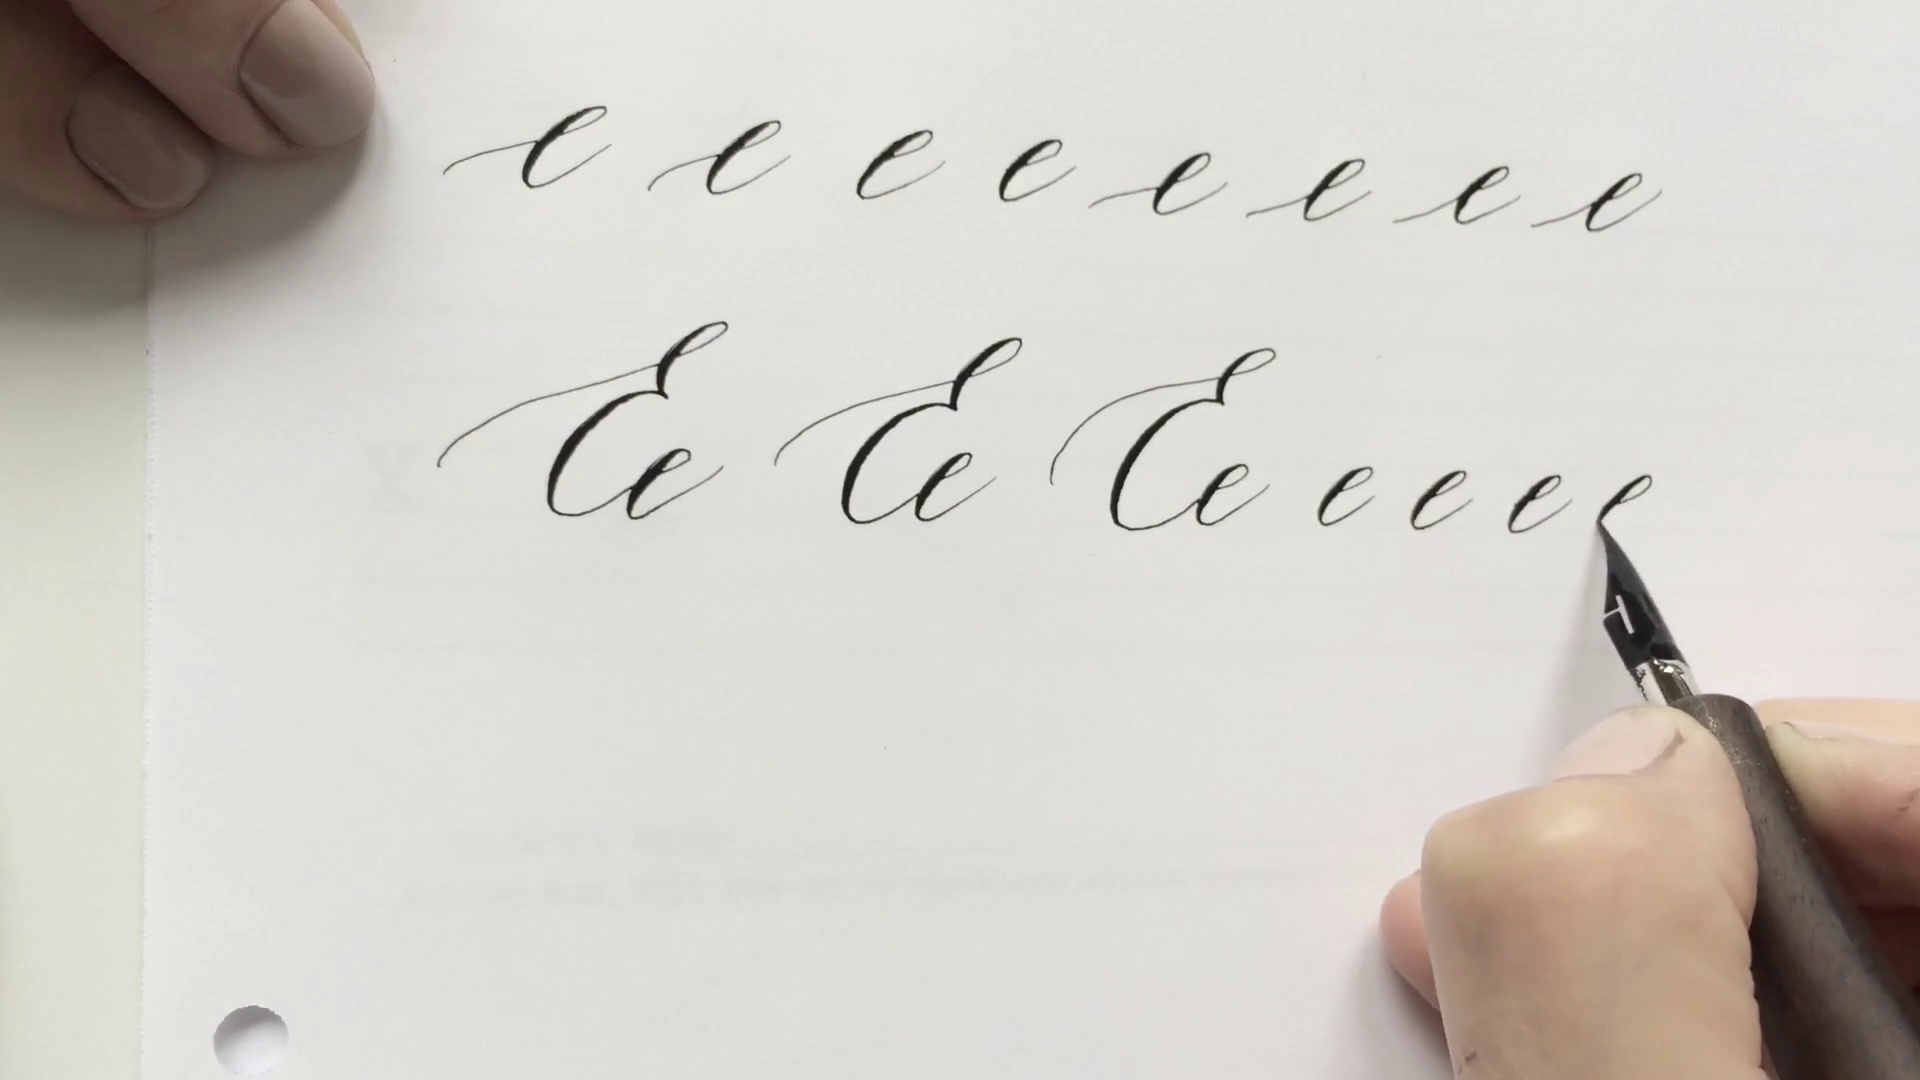 e e e e e e e e
Ee Ee Ee e e e e